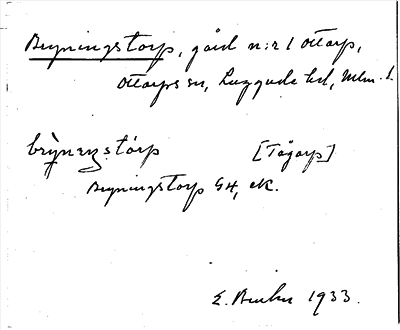 Bryningstorp, gård n:r 1 Ottarp,
Ottarps sn, Luggude hd, Mlm. l.
brỳnəŋs tórp [Tågarp]
Bryningstorp GK, ek.
1933.